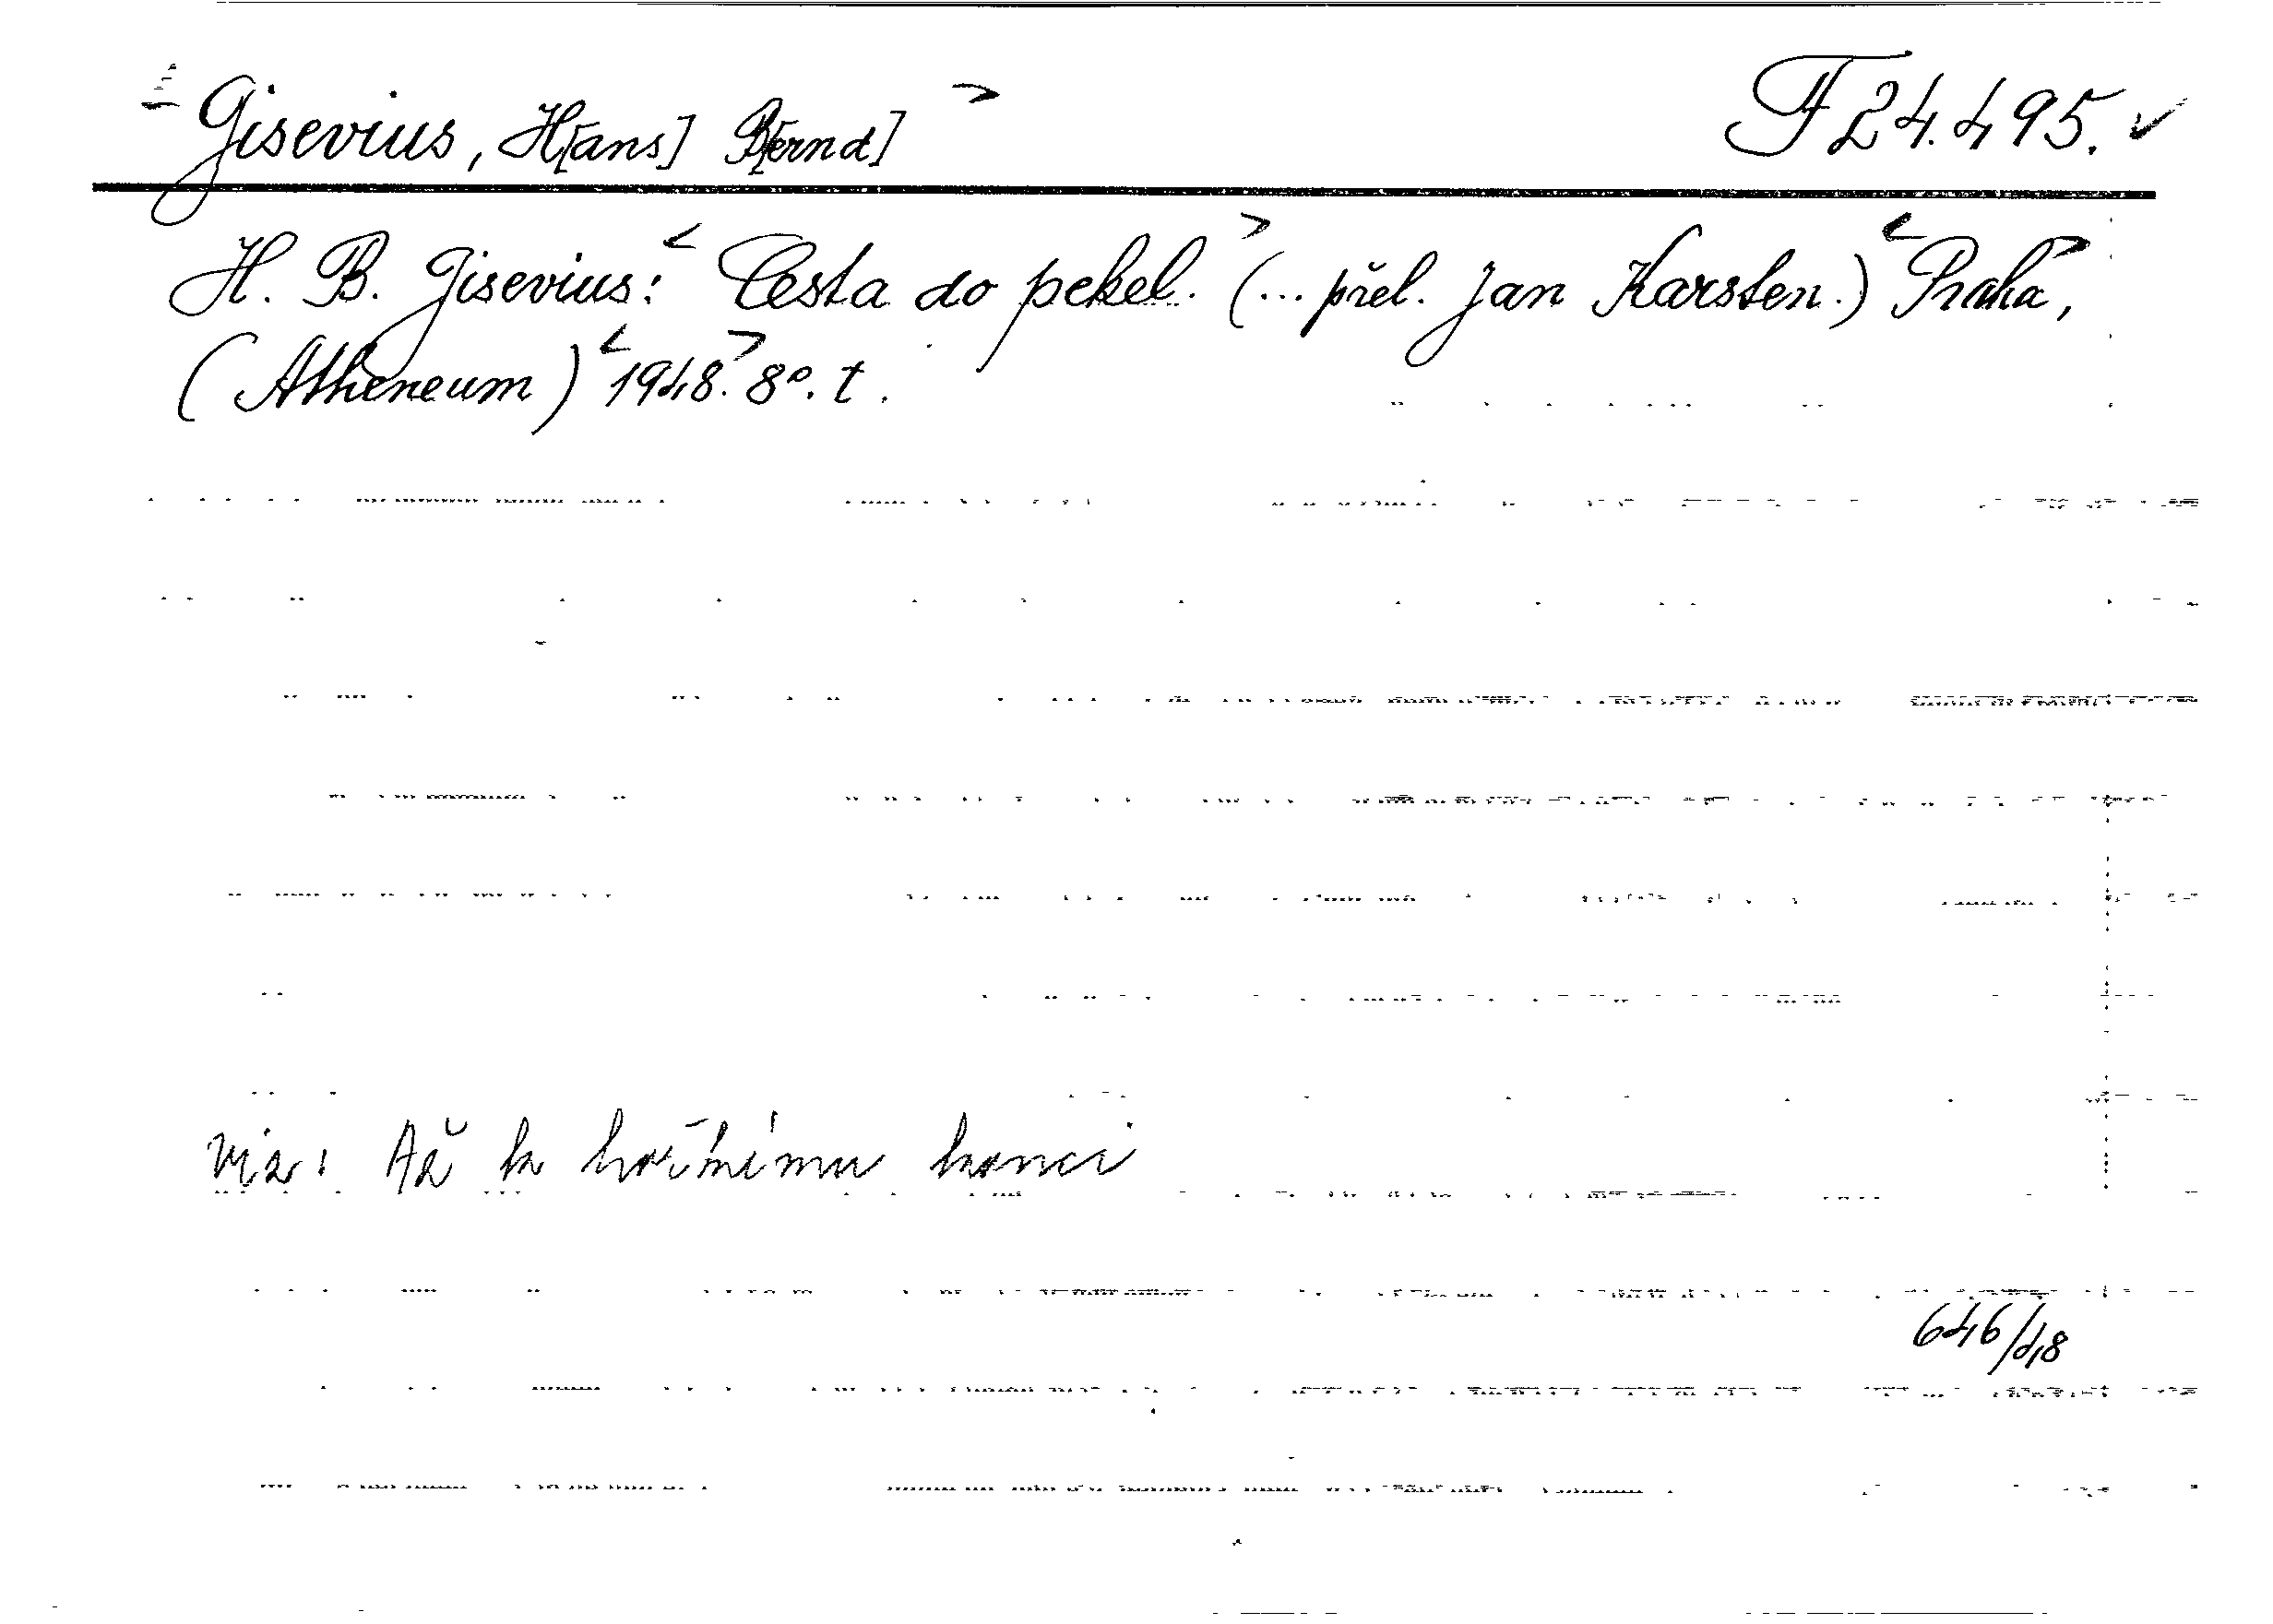 Gisevius, H[ans] B[ernd] F 24.495.
H. B. Gisevius: Cesta do pekel. (... přel. Jan Karsten.) Praha,
(Atheneum) 1948. 8°. t.
viz: Až k hořkému konci
646/48